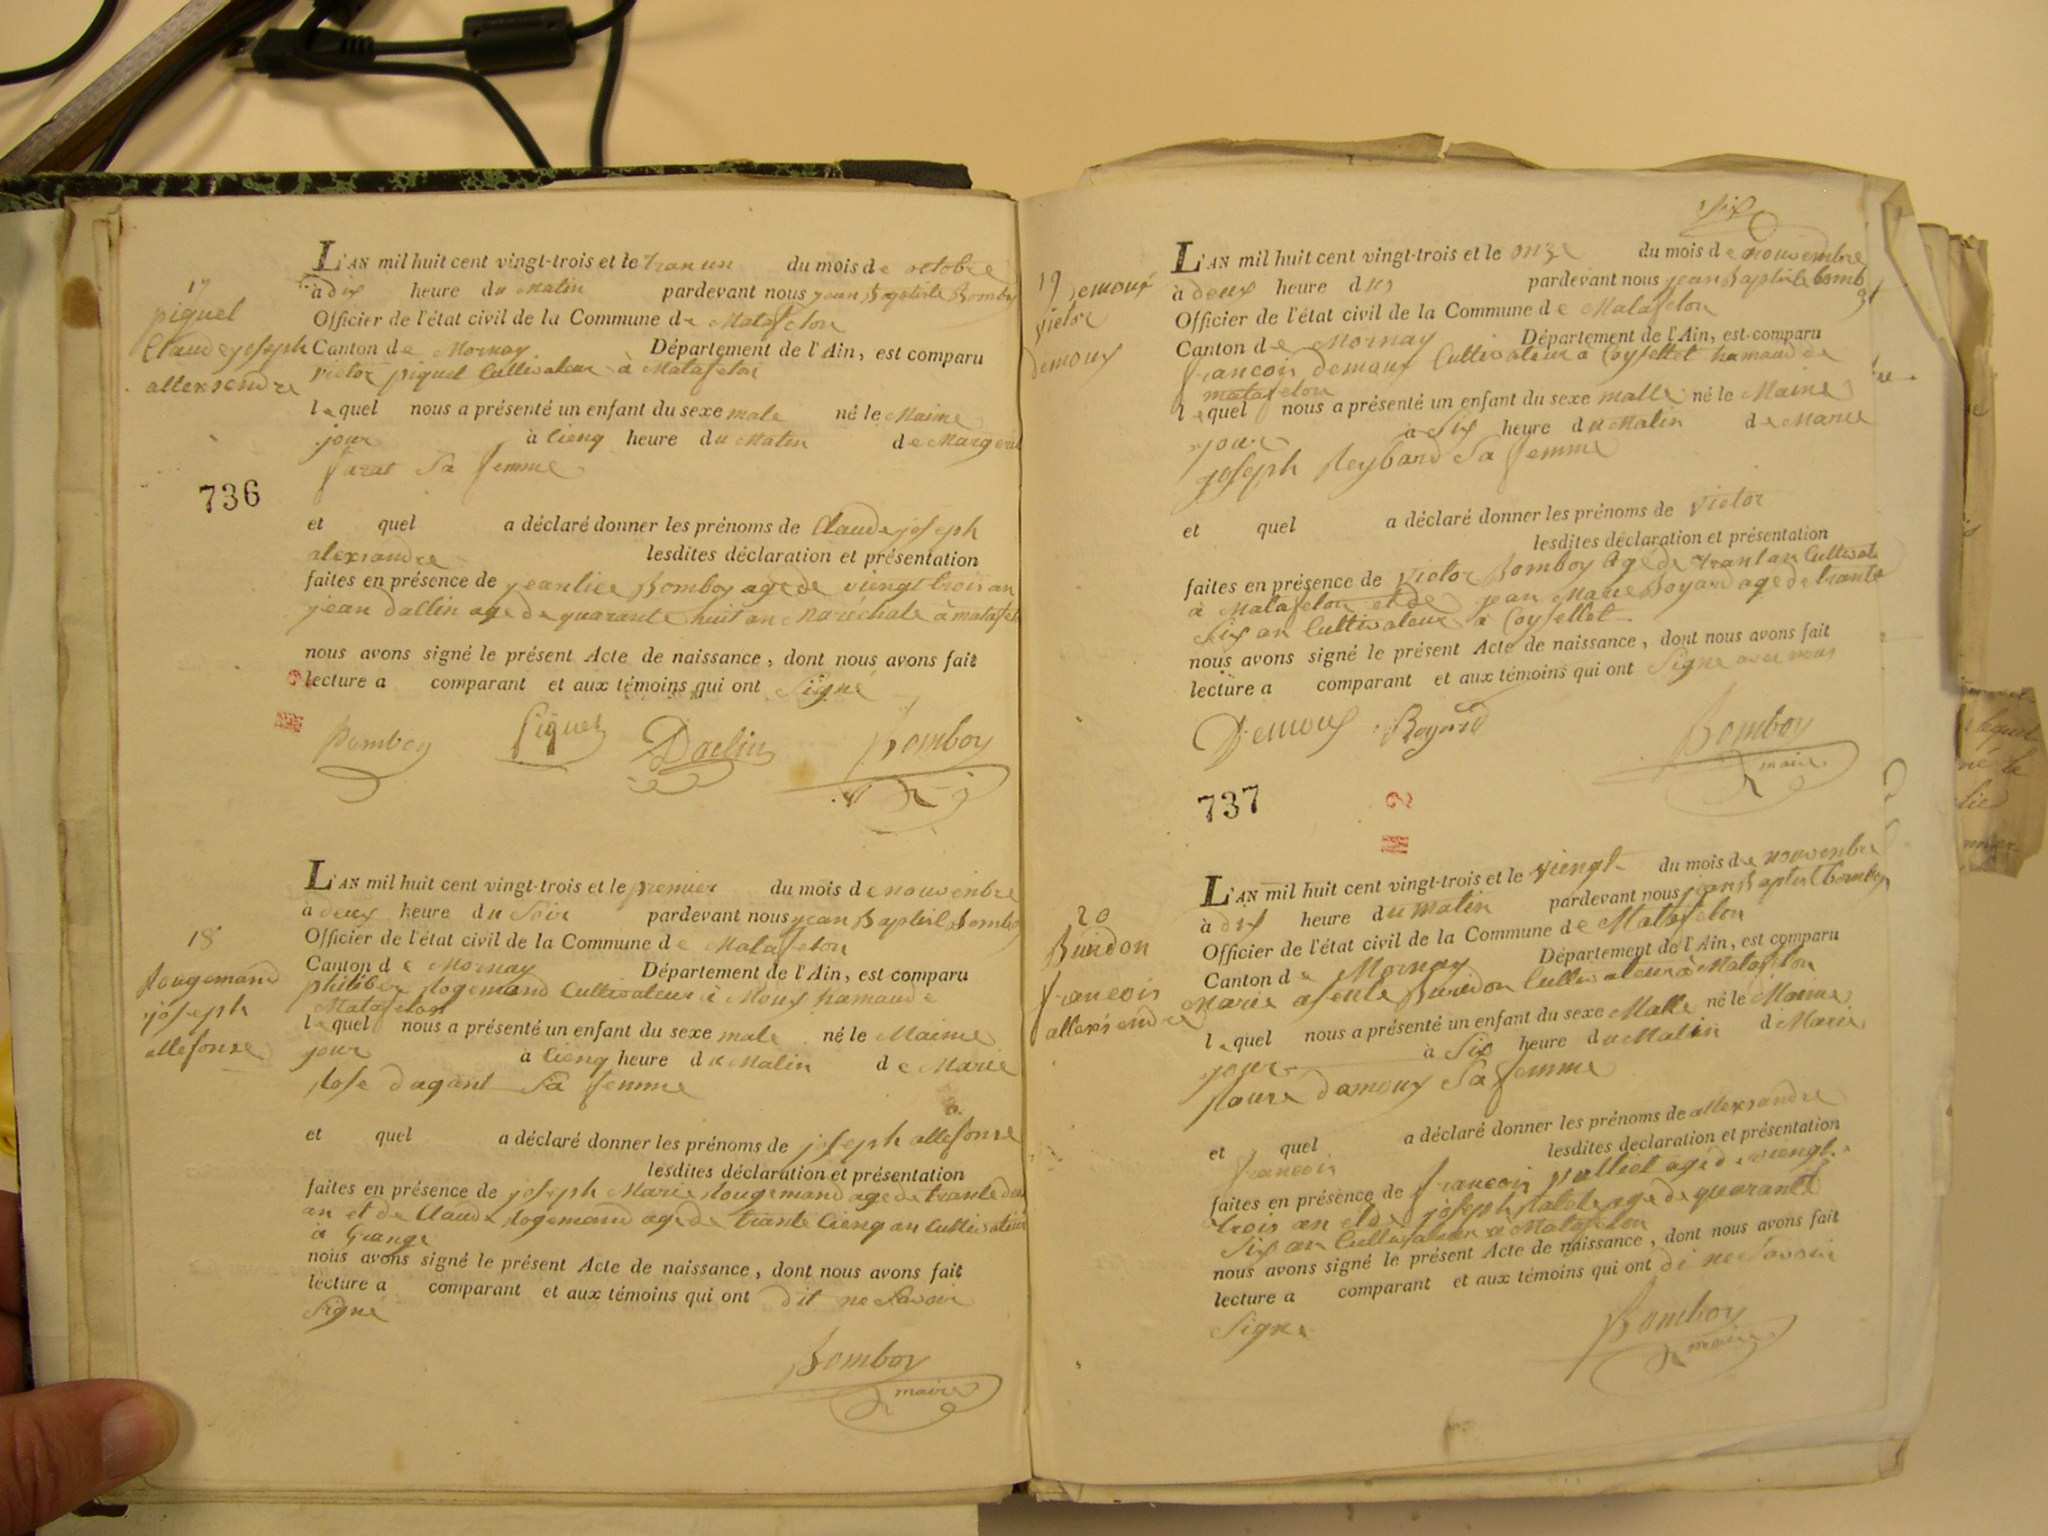 17
piquel
Claude joseph
allexsendre
L'AN mil huit cent vingt-trois et le tran un du mois de octobre
à dix heure du Matin pardevant nous jean Baptiste Bomboy
Officier de l'état civil de la Commune de Matafelon
Canton de Mornay Département de l'Ain, est comparu
victor piquel Cultivateur à Matafelon
lequel nous a présenté un enfant du sexe male né le Maime
jour à cienq heure du Matin de Margerit
sa femme
736
et quel a déclaré donner les prénoms de Claude joseph
alexsandre lesdites déclaration et présentation
faites en présence de Bomboy age de viengt trois an
jean daclin age de quarante huit an Maréchale à matafelon
nous avons signé le présent Acte de naissance, dont nous avons fait
lecture a comparant et aux témoins qui ont Signé
Bomboy Piquel Daclin Bomboy
18
Rougemand
joseph
allefonse
L'AN mil huit cent vingt-trois et le premier du mois de nouvenbre
à deux heure du Soir pardevant nous jean Baptist Bomboy
Officier de l'état civil de la Commune de Matafelon
Canton de Mornay Département de l'Ain, est comparu
philiber Rogemand Cultivateur à Moux hamaude
Matafelon
lequel nous a présenté un enfant du sexe male né le Maime
jour à cienq heure du Matin de Marie
Rose dagant Sa femme
et quel a déclaré donner les prénoms de joseph allefonse
lesdites déclaration et présentation
faites en présence de joseph Marie Rougemand age de trante deux
an et de Claude Rogemand age de trante cienq an Cultivateur
à Grange
nous avons signé le présent Acte de naissance, dont nous avons fait
lecture a comparant et aux témoins qui ont dit ne Savoir
Signe
Bomboy
maire
six
19 Demoux
victor
Demoux
L'AN mil huit cent vingt-trois et le onze du mois de nouvembre
à deux heure du pardevant nous jean Baptiste bomboy
Officier de l'état civil de la Commune de Matafelon
Canton de Mornay Département de l'Ain, est comparu
francois demoux Cultivateur à Coysellet hamaud de
matafelon
lequel nous a présenté un enfant du sexe malle né le Maime
jour à Six heure du Matin de Marie
joseph Reybard Sa femme
et quel a déclaré donner les prénoms de victor
lesdites déclaration et présentation
faites en présence de victor Bomboy agé de trant an Cultivat
à Matafelon et de jean Marie Boyard age de trante
Six an Cultivateur à Coysellet
nous avons signé le présent Acte de naissance, dont nous avons fait
lecture a comparant et aux témoins qui ont Signe avec nous
Demoux Bomboy
maire
737
20
Buridon
francois
allexsendre
L'AN mil huit cent vingt-trois et le viengt du mois de nouvenbre
à dix heure du matin pardevant nous jean Baptist bomboy
Officier de l'état civil de la Commune de Matafelon
Canton de Mornay Département de l'Ain, est comparu
Marie Buridon Cultivateur à Matafelon
lequel nous a présenté un enfant du sexe Malle né le Maime
jour à Six heure du Matin de Marie
damoux Sa femme
et quel a déclaré donner les prénoms de allexsandre
francois lesdites déclaration et présentation
faites en présence de francois palliet agé de viengt
trois an et de joseph age de quarante
Six an Cultivateur à Matafelon
nous avons signé le présent Acte de naissance, dont nous avons fait
lecture a comparant et aux témoins qui ont di ne Savoir
Signe
Bomboy
maire